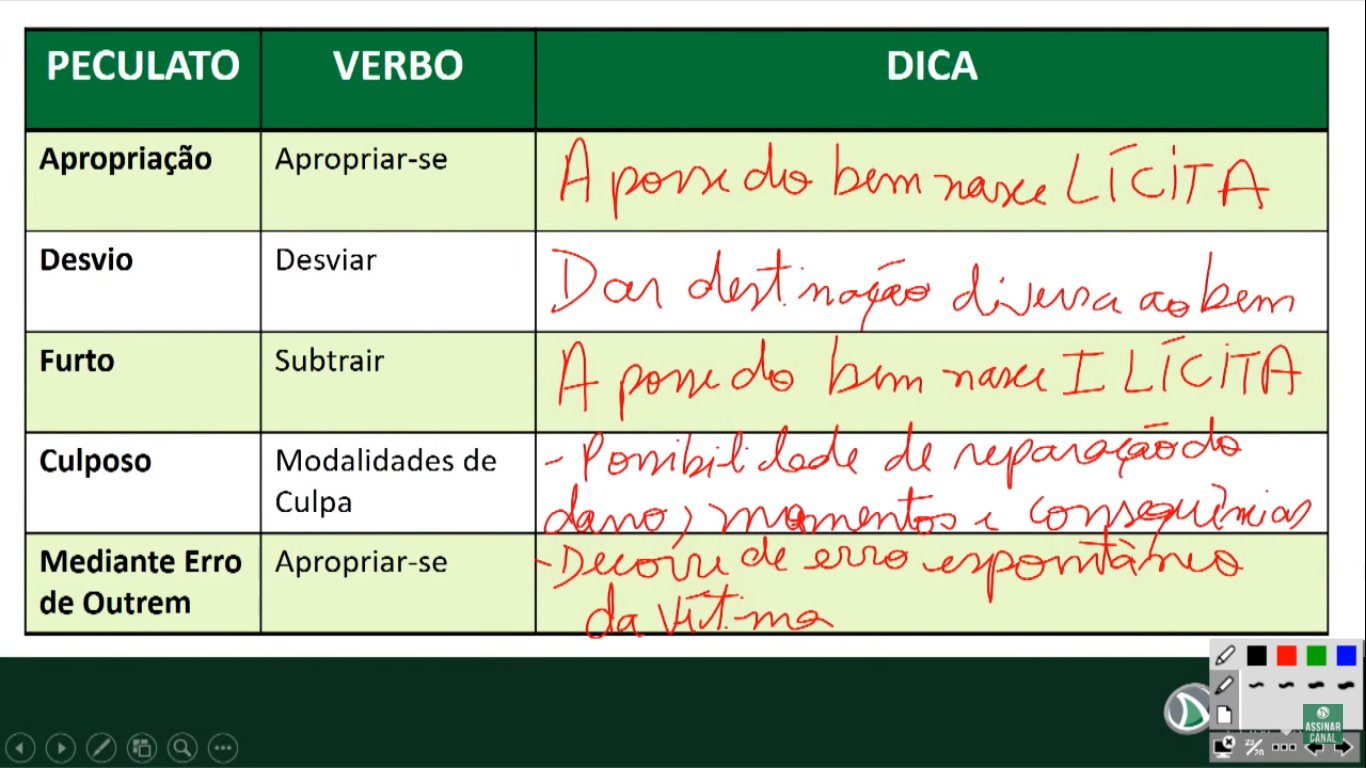 PECULATO VERBO DICA
Apropriação Apropriar-se A posse do bem nasce LÍCITA
Desvio Desviar Dar destinação diversa ao bem
Furto Subtrair A posse do bem nasce ILÍCITA
Culposo Modalidades de - Possibilidade de reparação do
Culpa dano, momentos e consequências
Mediante Erro Apropriar-se - Decorre de erro espontâneo
de Outrem da vítima
ASSINAR
CANAL